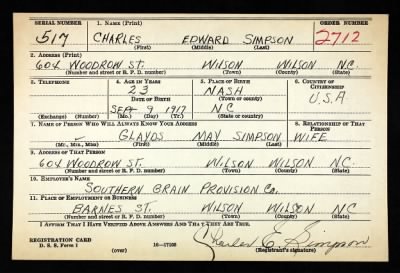 SERIAL NUMBER 1. NAME (Print) ORDER NUMBER
517 CHARLES EDWARD SIMPSON 2712
(First) (Middle) (Last)
2. ADDRESS (Print)
604 WOODROW ST. WILSON WILSON N.C.
(Number and street or R. F. D. number) (Town) (County) (State)
3. TELEPHONE 4. AGE IN YEARS 5. PLACE OF BIRTH 6. COUNTRY OF CITIZENSHIP
23 NASH
DATE OF BIRTH (Town or county) U.S.A
SEPT 9 1917 NC
(Exchange) (Number) (Mo.) (Day) (Yr.) (State or country)
7. NAME OF PERSON WHO WILL ALWAYS KNOW YOUR ADDRESS 8. RELATIONSHIP OF THAT PERSON
GLAYDS MAY SIMPSON WIFE
(Mr., Mrs., Miss) (First) (Middle) (Last)
9. ADDRESS OF THAT PERSON
604 WOODROW ST. WILSON WILSON NC.
(Number and street or R. F. D. number) (Town) (County) (State)
10. EMPLOYER'S NAME
SOUTHERN GRAIN PROVISION Co.
11. PLACE OF EMPLOYMENT OR BUSINESS
BARNES ST. WILSON WILSON NC.
(Number and street or R. F. D. number) (Town) (County) (State)
I AFFIRM THAT I HAVE VERIFIED ABOVE ANSWERS AND THAT THEY ARE TRUE.
REGISTRATION CARD
D. S. S. Form 1 (over) 16—17105 Charles E. Simpson
(Registrant's signature)